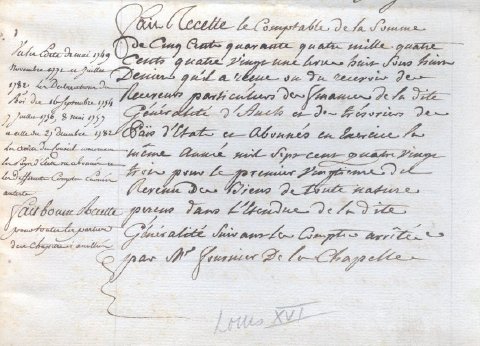 Vu les Edits de mai 1749
Novembre 1771 et Juillet
1782. Les Declarations du
Roi des 16 Septembre
7 Juillet 1756, 8 mai 1757
et celle du 21 decembre 1782
Les arrêts du Conseil concernant
les Pays d'Etats ou abonnés et
les differents Comptes
Fait bonne Recette
pour toutes les parties
de ce Chapitre
Fait Recette le Comptable de la Somme
de Cinq Cent quarante quatre mille quatre
Cents quatre vingt une livres huit Sous huit
Deniers qu'il a reçue ou dû recevoir des
Receveurs particuliers des finances de la dite
Généralité d'Auch et des trésoriers des
Païs d'Etats et Abonnés en Exercice la
même Année mil Sept cent quatre vingt
trois pour le premier Vingtieme des
Revenus des Biens de toute nature
perçus dans l'Etendue de la dite
Généralité Suivant les Comptes arrêtés
par Mr. fournier De la Chapelle
Louis XVI